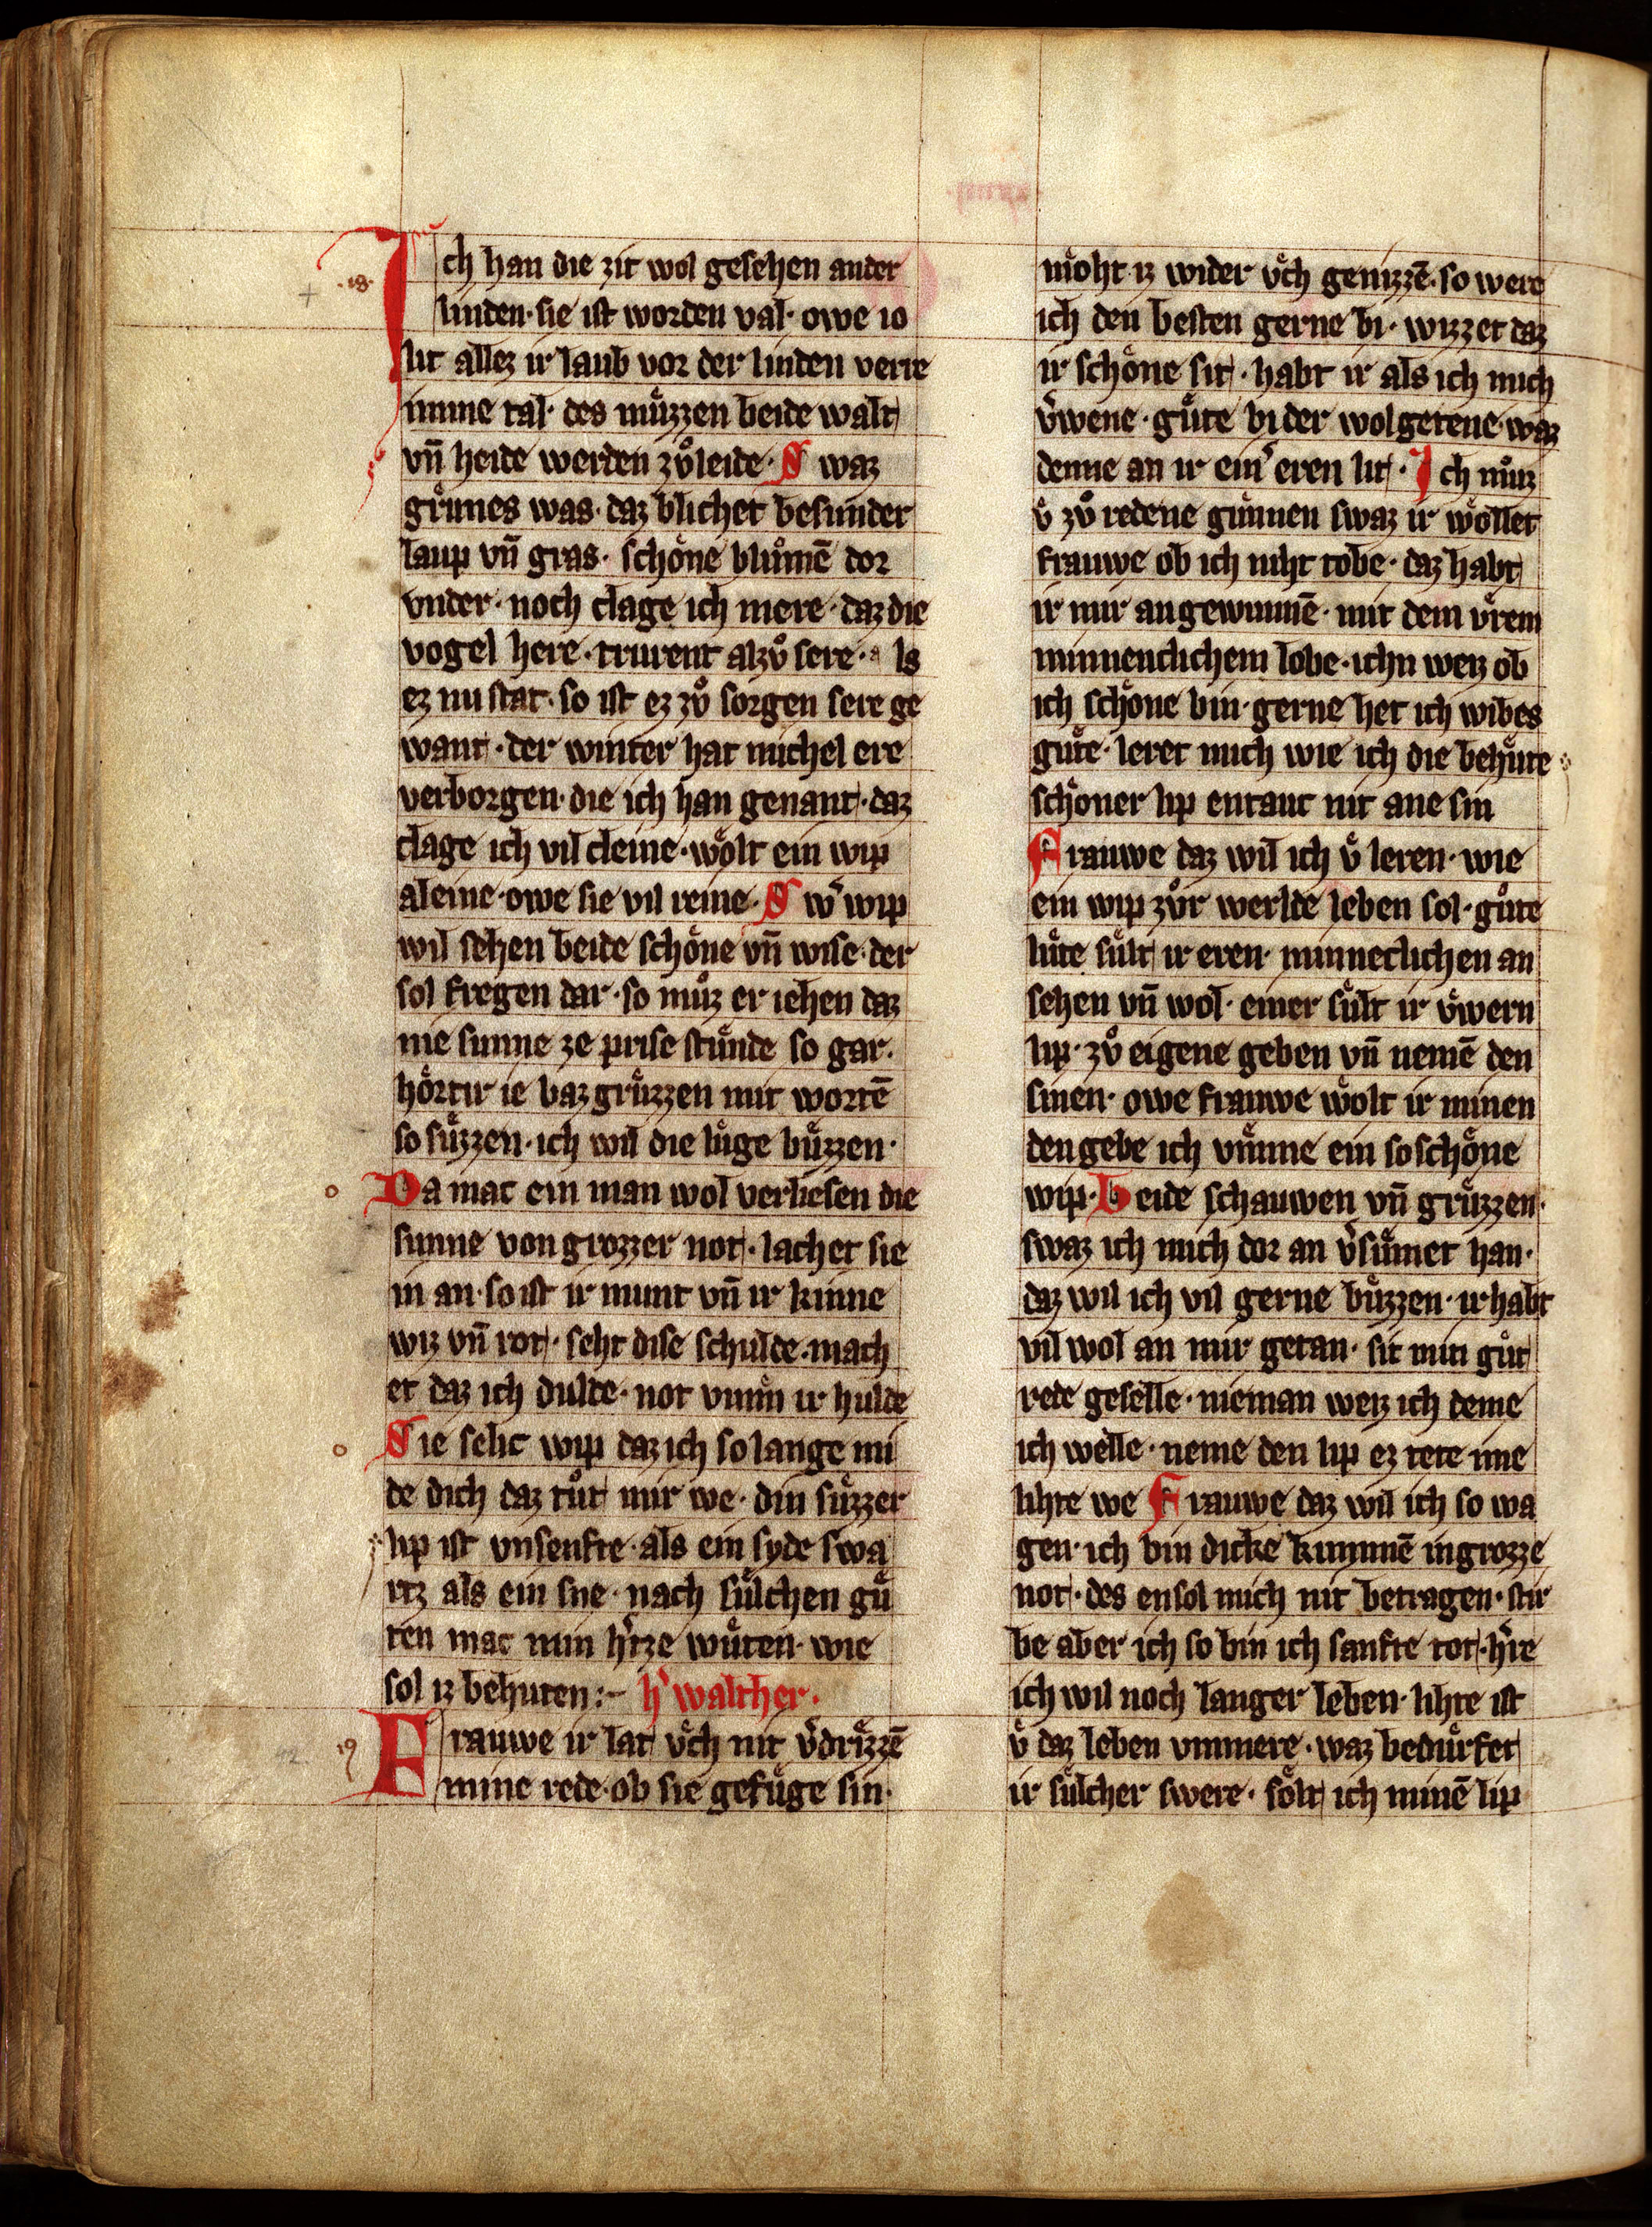 .18. Ich han die zit wol gesehen ander
linden· sie ist worden val· owe io
lit allez ir laub vor der linden verre
inme tal· des muͤzzen beide walt
vn̄ heide werden zuͦleide· S waz
gruͤnes was· daz blichet besunder
laup vn̄ gras· schoͤne bluͦmē dor
vnder· noch clage ich mere· daz die
vogel here· trurent alzuͦ sere· als
ez nu stat· so ist ez zuͦ sorgen sere ge
want· der winter hat michel ere
verborgen· die ich han genant· daz
clage ich vil cleine· woͤlt ein wip
aleine· owe sie vil reine· S w͛ wip
wil sehen beide schoͤne vn̄ wise· der
sol fregen dar· so muͦz er iehen daz
nie sunne ze prise stuͤnde so gar·
hoͤrtir ie baz gruͤzzen mit wortē
so suͤzzen· ich wil die luͤge buͤzzen·
Da mac ein man wol verliesen die
sunne von grozzer not· lachet sie
in an· so ist ir munt vn̄ ir kinne
wiz vn̄ rot· seht dise schulde· mach
et daz ich dulde· not vmm̄ ir hulde
Sie selic wip daz ich so lange mi
de dich daz tuͦt mir we· din suͤzzer
lip ist vnsenfte· als ein syde swa
rtz als ein sne· nach suͤlchen guͤ
ten mac min h͛tze wuͤten· wie
sol iz behuten:– h͛ walther·
19 Frauwe ir lat uͤch nit v͛drizzē
mine rede· ob sie gefuͤge sin·
moͤht iz wider uͤch genizzē· so were
ich den besten gerne bi· wizzet daz
ir schoͤne sit· habt ir als ich mich
v͛wene· guͤte bi der wolgetene· waz
denne an ir ein͛ eren lit· Ich muͦz
uͤ zuͦ redene guͤnnen swaz ir woͤllet
frauwe ob ich niht tobe· daz habt
ir mir an gewunnē· mit dem uͤrem
minnenclichem lobe· ichn weiz ob
ich schoͤne bin· gerne het ich wibes
guͤte· leret mich wie ich die behuͤte
schoͤner lip entauc nit ane sin
Frauwe daz wil ich uͤ leren· wie
ein wip zuͦr werlde leben sol· guͦte
luͤte suͤlt ir eren· minneclichen an
sehen vn̄ wol· einer suͤlt ir uͤwern
lip· zuͦ eigene geben vn̄ nemē den
sinen· owe frauwe woͤlt ir minen
den gebe ich vm̄me ein so schoͤne
wip· Beide schauwen vn̄ gruͤzzen·
swaz ich mich dor an v͛sumet han·
daz wil ich vil gerne buͤzzen· ir habt
vil wol an mir getan· sit min guͦt
rede geselle· nieman weiz ich deme
ich welle· neme den lip ez tete ime
lihte we Frauwe daz wil ich so wa
gen· ich bin dicke kummē in grozze
not· des ensol mich nit betragen· stir
be aber ich so bin ich sanfte tot· h͛re
ich wil noch langer leben· lihte ist
uͤ daz leben vmmere· waz beduͤrfet
ir suͤlcher swere· soͤlt ich minē lip